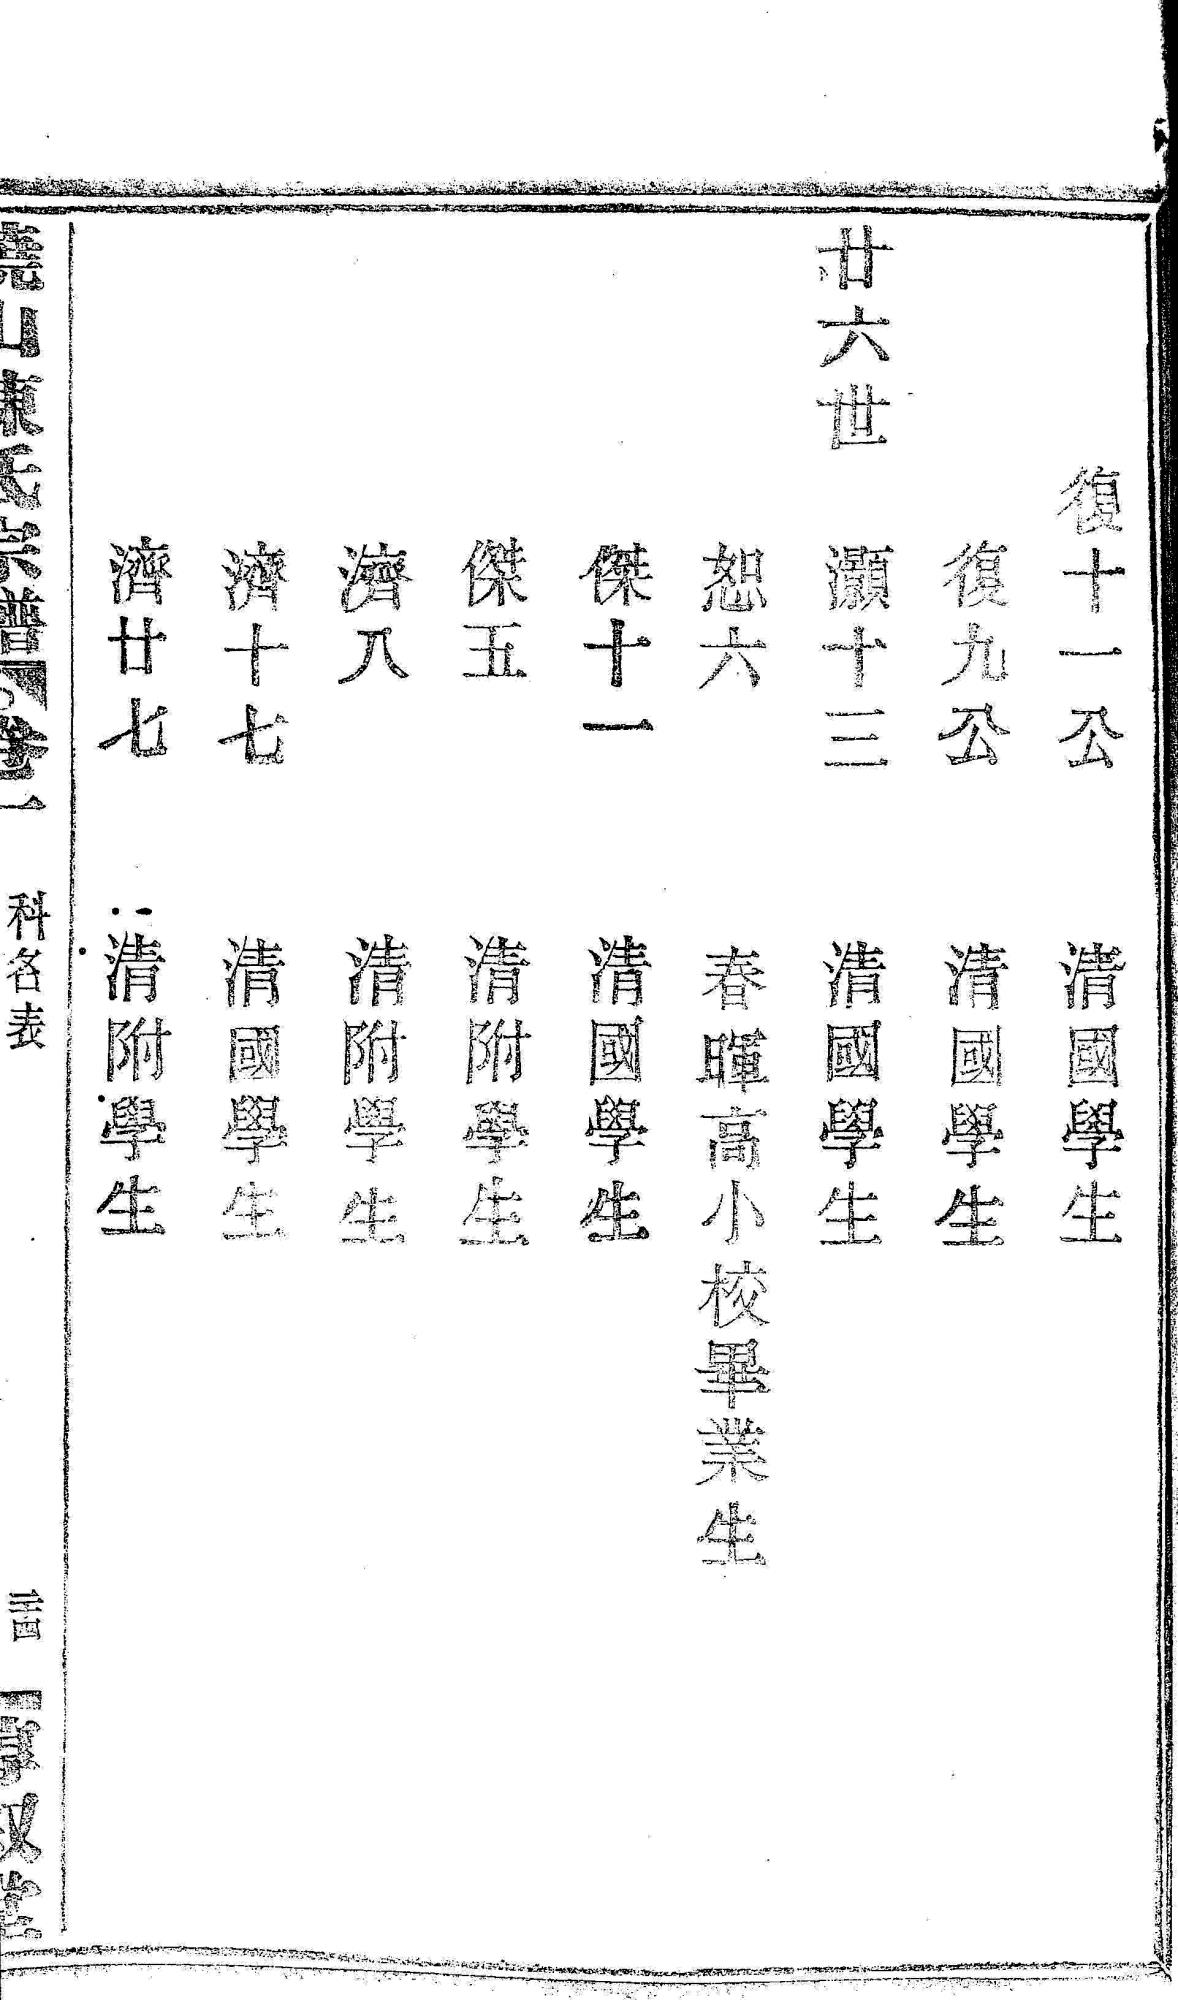 復十一公 清國學生
復九公 清國學生
廿六世 灝十三 清國學生
恕六 春暉高小校畢業生
傑十一 清國學生
傑五 清附學生
濟八 清附學生
濟十七 清國學生
濟廿七 清附學生
山陳氏宗譜 卷一 科名表 二十四